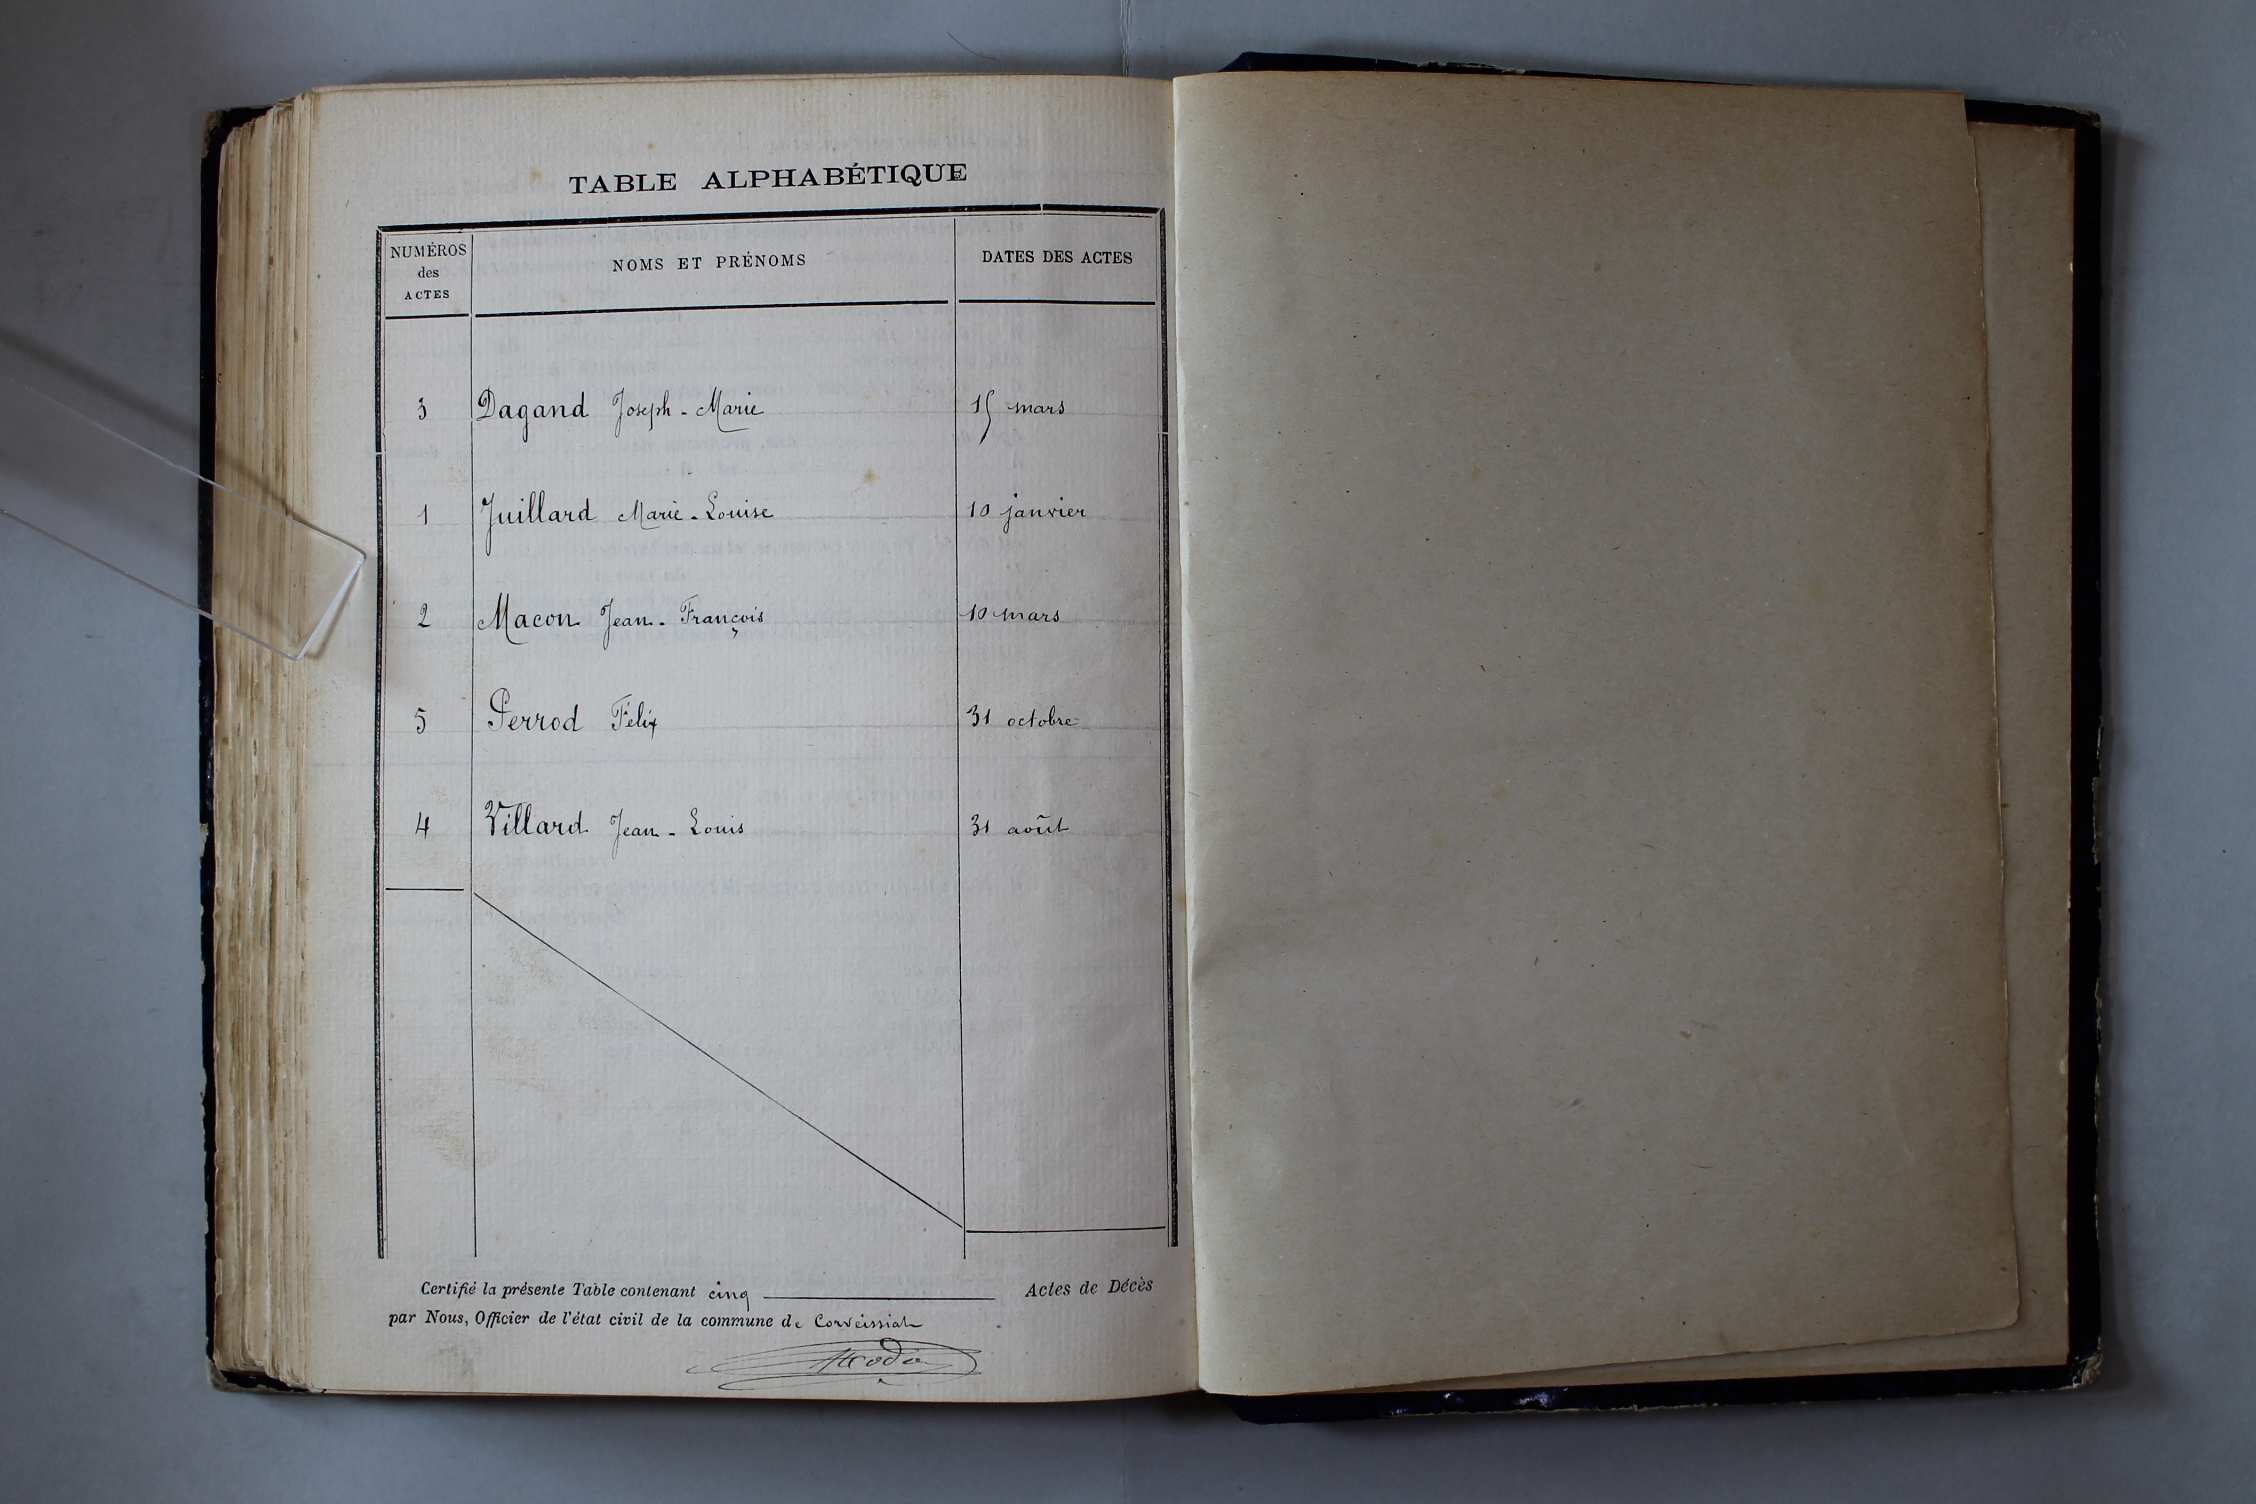 TABLE ALPHABÉTIQUE
NUMÉROS des ACTES NOMS ET PRÉNOMS DATES DES ACTES
3 Dagand Joseph-Marie 15 mars
1 Juillard Marie-Louise 10 janvier
2 Macon Jean-François 10 mars
5 Perrod Félix 31 octobre
4 Villard Jean-Louis 31 août
Certifié la présente Table contenant cinq Actes de Décès
par Nous, Officier de l'état civil de la commune de Corveissiat